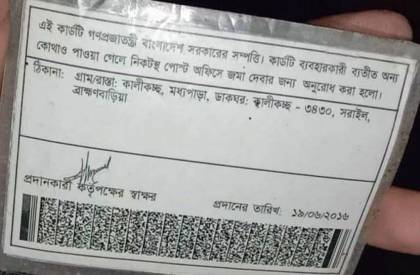 এই কার্ডটি গণপ্রজাতন্ত্রী বাংলাদেশ সরকারের সম্পত্তি। কার্ডটি ব্যবহারকারী ব্যতীত অন্য
কোথাও পাওয়া গেলে নিকটস্থ পোস্ট অফিসে জমা দেবার জন্য অনুরোধ করা হলো।
ঠিকানা: গ্রাম/রাস্তা: কালীকচ্ছ, মধ্যপাড়া, ডাকঘর: কালীকচ্ছ - ৩৪৩০, সরাইল,
ব্রাহ্মণবাড়িয়া
প্রদানকারী কর্তৃপক্ষের স্বাক্ষর
প্রদানের তারিখ: ১৯/০৬/২০১৬